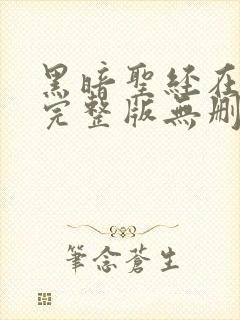 黑暗聖經在
完整版無刪
筆念蒼生